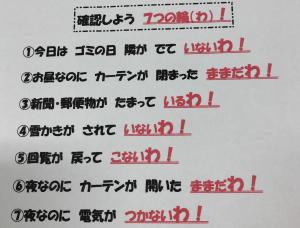 確認しよう 7つの輪(わ)！
①今日は ゴミの日 隣が でて いないわ！
②お昼なのに カーテンが 閉まった ままだわ！
③新聞・郵便物が たまって いるわ！
④雪かきが されて いないわ！
⑤回覧が 戻って こないわ！
⑥夜なのに カーテンが 開いた ままだわ！
⑦夜なのに 電気が つかないわ！